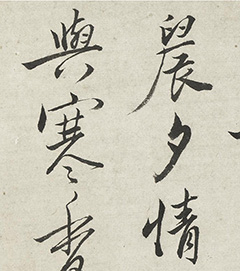 晨夕情
與寒香